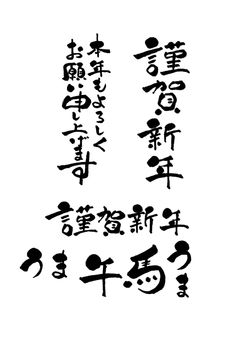 謹賀新年
本年もよろしく
お願い申し上げます
謹賀新年
うま
午
馬
うま